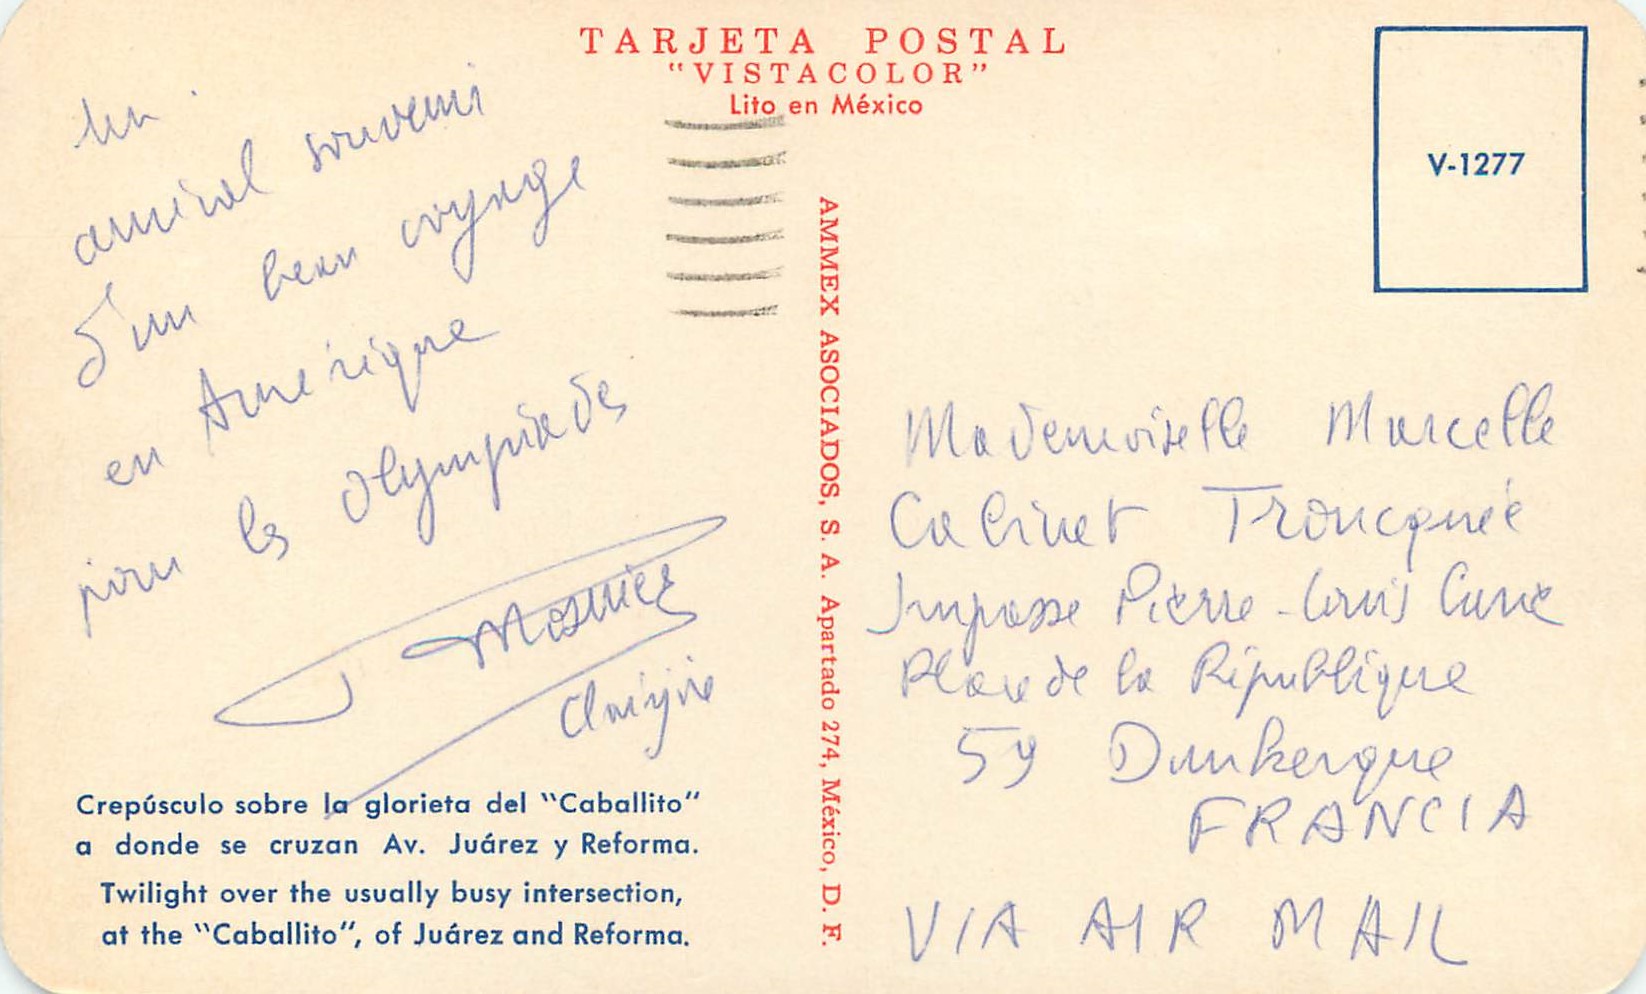 TARJETA POSTAL
"VISTACOLOR"
Lito en México
V-1277
Un
amical souvenir
d'un beau voyage
en Amérique
pour les Olympiades
Crepúsculo sobre la glorieta del "Caballito"
a donde se cruzan Av. Juárez y Reforma.
Twilight over the usually busy intersection,
at the "Caballito", of Juárez and Reforma.
AMMEX ASOCIADOS, S. A. Apartado 274, México, D. F.
Mademoiselle Marcelle
Cabinet Troncquée
Impasse Pierre-Louis
Place de la République
59 Dunkerque
FRANCIA
VIA AIR MAIL